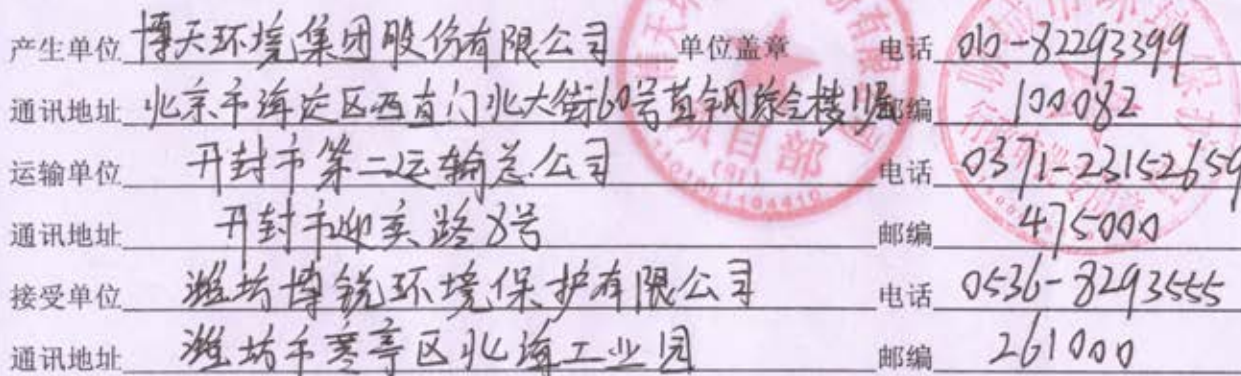 产生单位 博天环境集团股份有限公司 单位盖章 电话 010-82293399
通讯地址 北京市海淀区西直门北大街60号首钢综合楼11层 邮编 100082
运输单位 开封市第二运输总公司 电话 0371-23152659
通讯地址 开封市迎宾路8号 邮编 475000
接受单位 潍坊博锐环境保护有限公司 电话 0536-8293555
通讯地址 潍坊市寒亭区北海工业园 邮编 261000
项目部